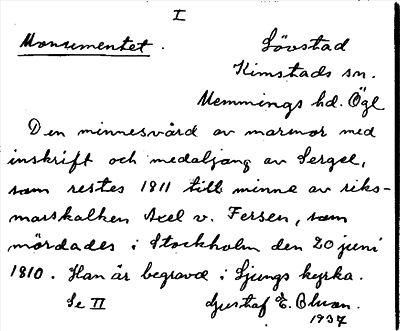 I
Monumentet.
Lövstad
Kimstads sn.
Memmings hd. Ögl
Den minnesvård av marmor med
inskrift och medaljong av Sergel,
som restes 1811 till minne av riks-
marskalken Axel v. Fersen, som
mördades i Stockholm den 20 juni
1810. Han är begravd i Ljungs kyrka.
Se II
Gustaf E. Bluan.
1937